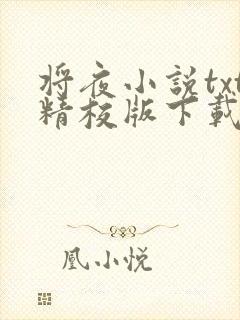 将夜小説txt
精校版下載
凰小悦